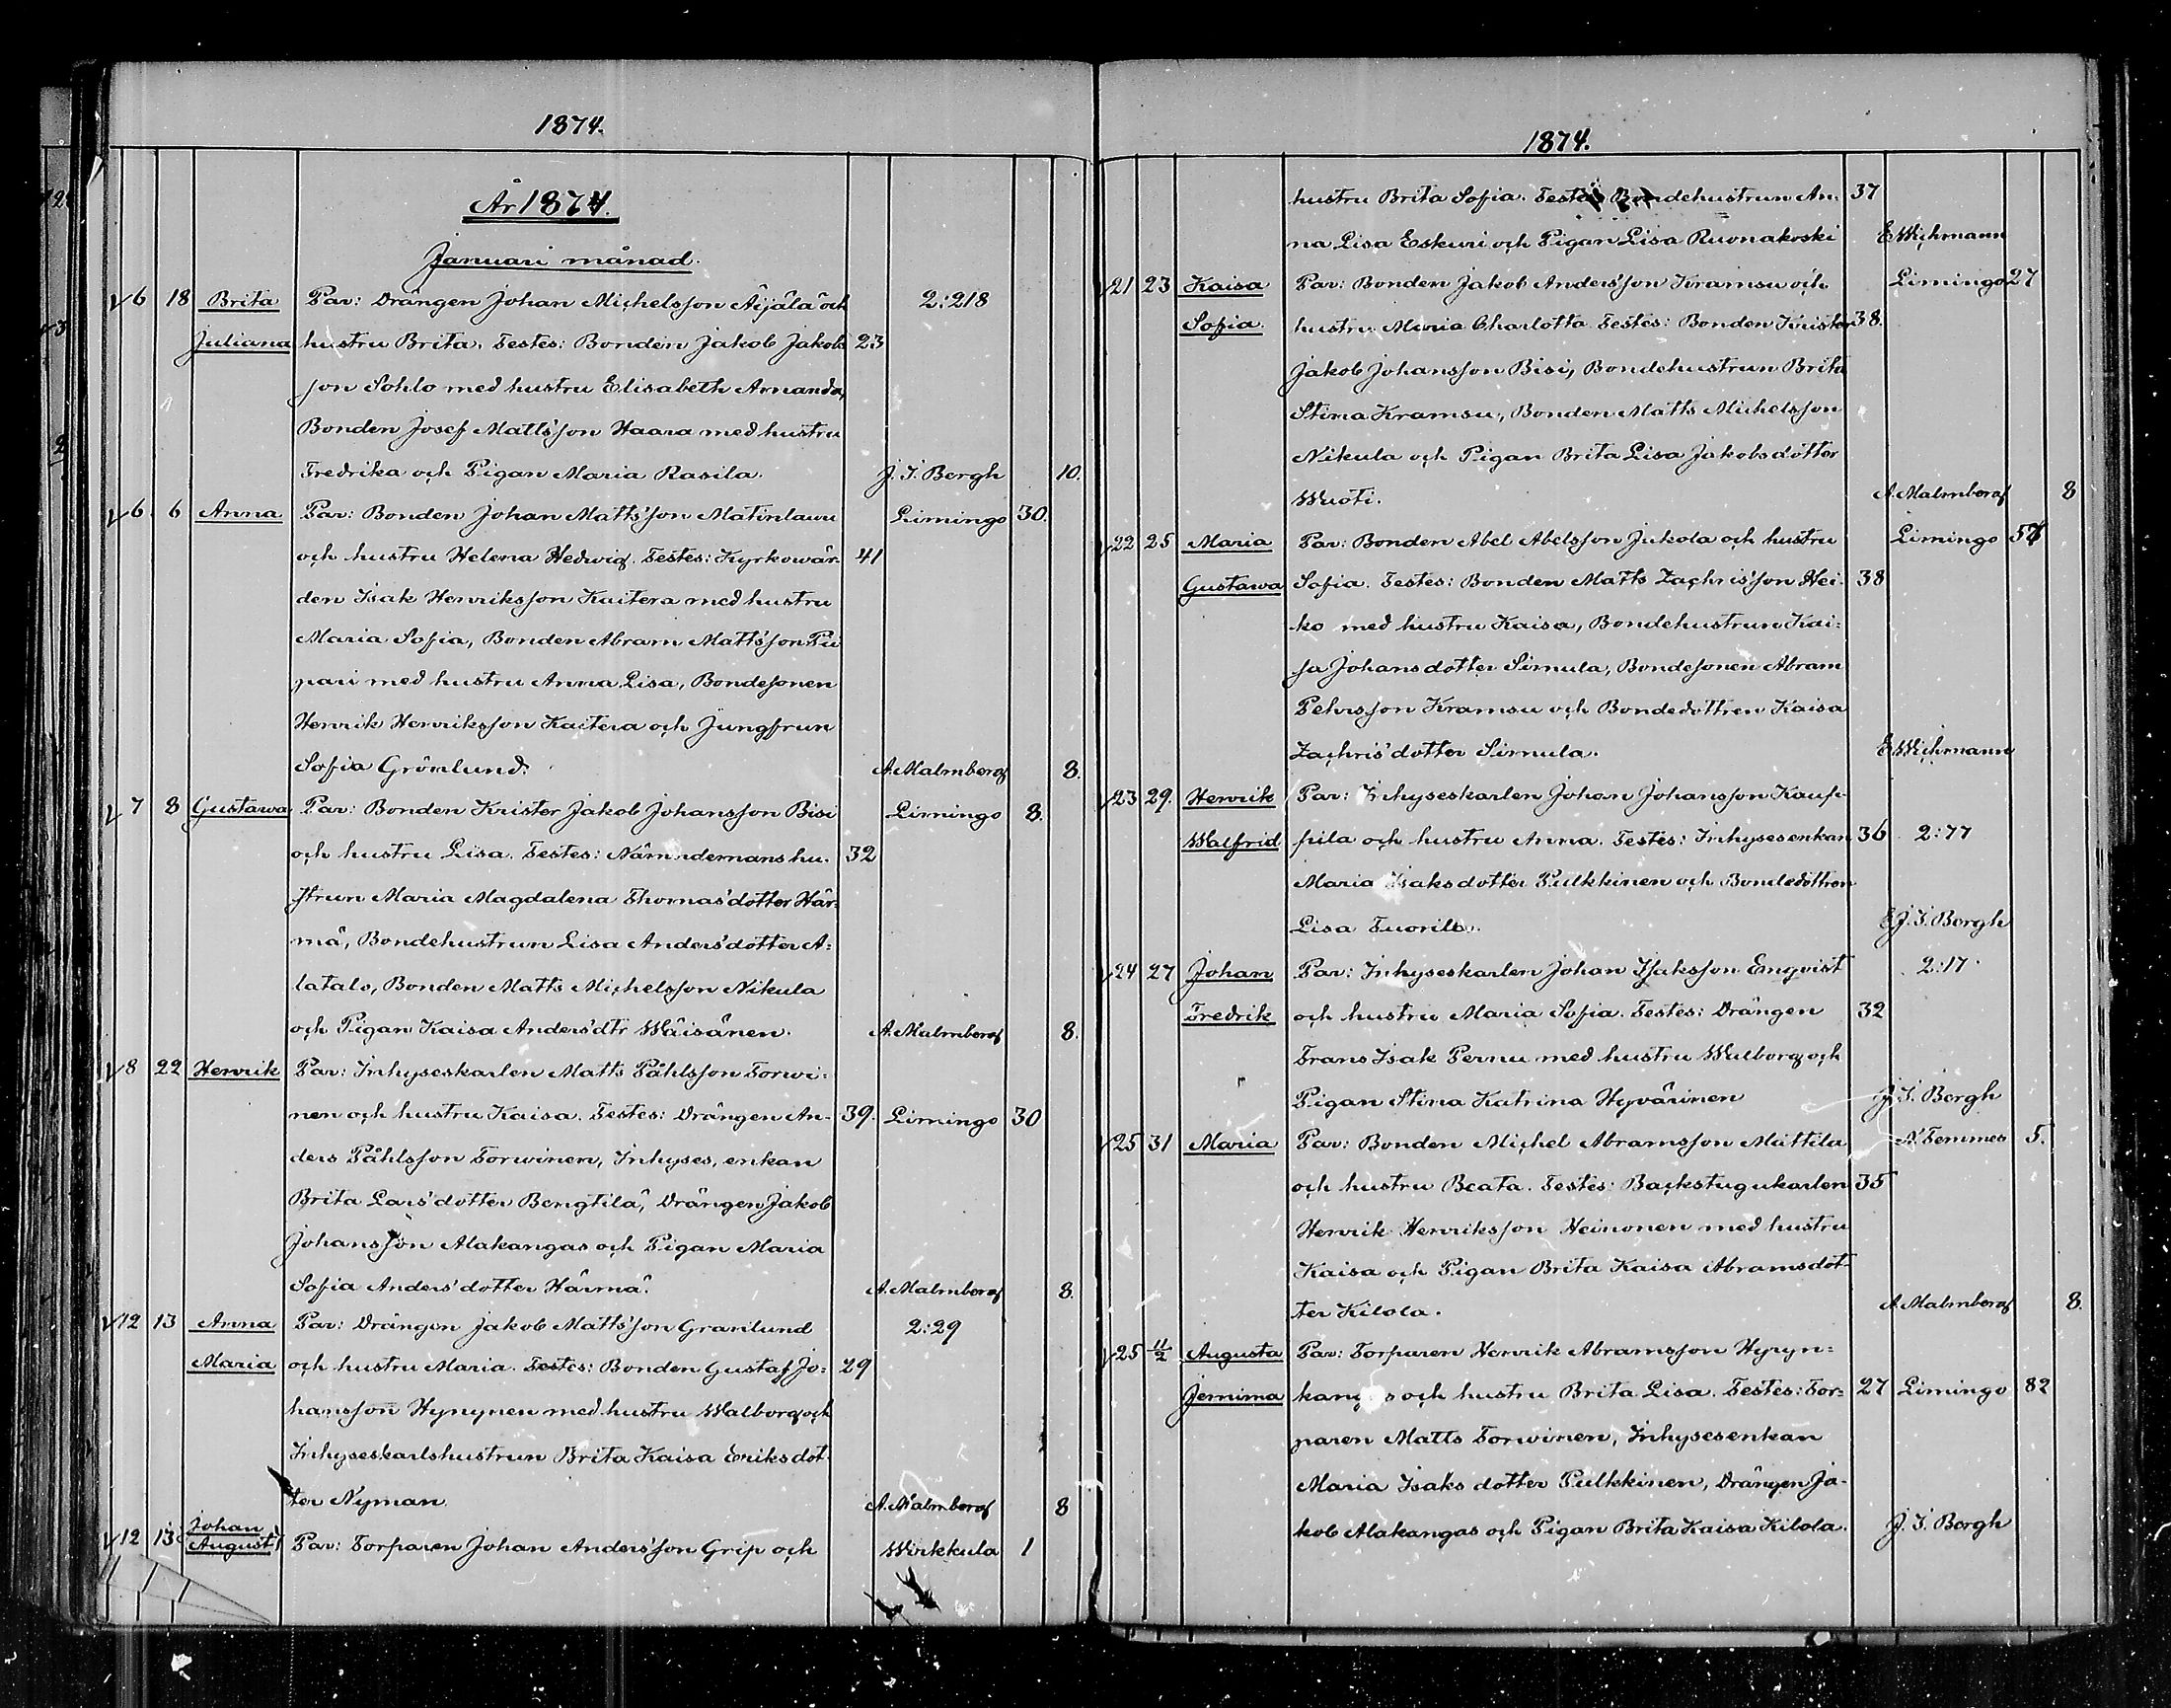 1874.
År 1874.
Januari månad.
6 18 Brita Par: Drängen Johan Michelsson Äijälä och 2:218
Juliana hustru Brita. Testes: Bonden Jakob Jakobs 23
son Sohlo med hustru Elisabeth Amanda,
Bonden Josef Matts'son Haara med hustru
Fredrika och Pigan Maria Rasila. J. F. Bergh 10.
6. 6 Anna Par: Bonden Johan Matts'son Matinlauri Limingo 30.
och hustru Helena Hedwig. Testes: Kyrkowär- 41
den Isak Henriksson Kaitera med hustru
Maria Sofia, Bonden Abram Matts'son Pii
pari med hustru Anna Lisa, Bondesonen
Henrik Henriksson Kaitera och Jungfrun
Sofia Grönlund. A. Malmberg 8.
7 8 Gustawa Par: Bonden Krister Jakob Johansson Bisi Limingo 8.
och hustru Lisa. Testes: Nämndemanshu- 32
strun Maria Magdalena Thomas'dotter Här-
mä, Bondehustrun Lisa Anders'dotter A=
latalo, Bonden Matts Michelsson Nikula
och Pigan Kaisa Anders'dtr Wäisänen. A. Malmberg 8.
8 22 Henrik Par: Inhyseskarlen Matts Påhlsson Torwi=
nen och hustru Kaisa. Testes: Drängen An- 39. Limingo 30
ders Påhlsson Torwinen, Inhyses, enkan
Brita Lars'dotter Bengtilä, Drängen Jakob
Johansson Alakangas och Pigan Maria
Sofia Anders'dotter Härmä. A. Malmberg 8.
12 13 Anna Par: Drängen Jakob Matts'son Granlund 2:29
Maria och hustru Maria. Testes: Bonden Gustaf Jo= 29
hansson Hynynen med hustru Walborg och
Inhyseskarlshustrun Brita Kaisa Eriksdot-
ter Nyman. A. Malmberg 8
Johan
12 13 August Par: Torparen Johan Anders'son Grip och Wirkkula 1
1874.
hustru Brita Sofia. Testes Bondehustrun An= 37
na Lisa Eskuri och Pigan Lisa Ruonakoski E Wichmann
21 23 Kaisa Par: Bonden Jakob Anders'son Kramsu och Limingo 27
Sofia. hustru Maria Charlotta. Testes: Bonden Krister 38.
Jakob Johansson Bisi, Bondehustrun Brita
Stina Kramsu, Bonden Matts Michelsson
Nikula och Pigan Brita Lisa Jakobsdotter
Wuoti. A. Malmberg 8
22 25 Maria Par: Bonden Abel Abelsson Jukola och hustru Limingo
Gustawa Sofia. Testes: Bonden Matts Zachris'son Hei- 38
ko med hustru Kaisa, Bondehustrun Kai=
sa Johansdotter Simula, Bondesonen Abram
Pehrsson Kramsu och Bondedottren Kaisa
Zachris'dotter Simula. E Wichmann
23 29. Henrik Par: Inhyseskarlen Johan Johansson Kaup-
Walfrid pila och hustru Anna. Testes: Inhysesenkan 36 2:77
Maria Isaksdotter Pulkkinen och Bondedottren
Lisa Tuorila. J. F. Bergh
24 27 Johan Par: Inhyseskarlen Johan Isaksson Emqvist 2:17
Fredrik och hustru Maria Sofia. Testes: Drängen 32
Frans Isak Pernu med hustru Walborg och
Pigan Stina Katrina Hyvärinen J. F. Bergh
25 31 Maria Par: Bonden Michel Abramsson Mattila N. Temmes 5.
och hustru Beata. Testes: Backstugukarlen 35
Henrik Henriksson Heinonen med hustru
Kaisa och Pigan Brita Kaisa Abramsdot-
ter Kilola. A. Malmberg 8.
25 11/2 Augusta Par: Torparen Henrik Abramsson Hyryn=
Jemima kangas och hustru Brita Lisa. Testes: Tor= 27 Limingo 82
paren Matts Torwinen, Inhysesenkan
Maria Isaks dotter Pulkkinen, Drängen Ja-
kob Alakangas och Pigan Brita Kaisa Kilola. J. F. Bergh